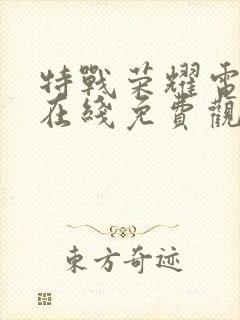 特戰荣耀電
在綫免費觀
東方奇迹